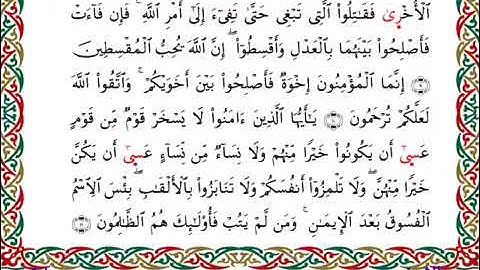 ٱلْأُخْرَىٰ فَقَٰتِلُوا۟ ٱلَّتِى تَبْغِى حَتَّىٰ تَفِىٓءَ إِلَىٰٓ أَمْرِ ٱللَّهِ ۚ فَإِن فَآءَتْ
فَأَصْلِحُوا۟ بَيْنَهُمَا بِٱلْعَدْلِ وَأَقْسِطُوٓا۟ ۖ إِنَّ ٱللَّهَ يُحِبُّ ٱلْمُقْسِطِينَ
﴿٩﴾ إِنَّمَا ٱلْمُؤْمِنُونَ إِخْوَةٌ فَأَصْلِحُوا۟ بَيْنَ أَخَوَيْكُمْ ۚ وَٱتَّقُوا۟ ٱللَّهَ
لَعَلَّكُمْ تُرْحَمُونَ ﴿١٠﴾ يَٰٓأَيُّهَا ٱلَّذِينَ ءَامَنُوا۟ لَا يَسْخَرْ قَوْمٌ مِّن قَوْمٍ
عَسَىٰٓ أَن يَكُونُوا۟ خَيْرًا مِّنْهُمْ وَلَا نِسَآءٌ مِّن نِّسَآءٍ عَسَىٰٓ أَن يَكُنَّ
خَيْرًا مِّنْهُنَّ ۖ وَلَا تَلْمِزُوٓا۟ أَنفُسَكُمْ وَلَا تَنَابَزُوا۟ بِٱلْأَلْقَٰبِ ۖ بِئْسَ ٱلِٱسْمُ
ٱلْفُسُوقُ بَعْدَ ٱلْإِيمَٰنِ ۚ وَمَن لَّمْ يَتُبْ فَأُو۟لَٰٓئِكَ هُمُ ٱلظَّٰلِمُونَ ﴿١١﴾